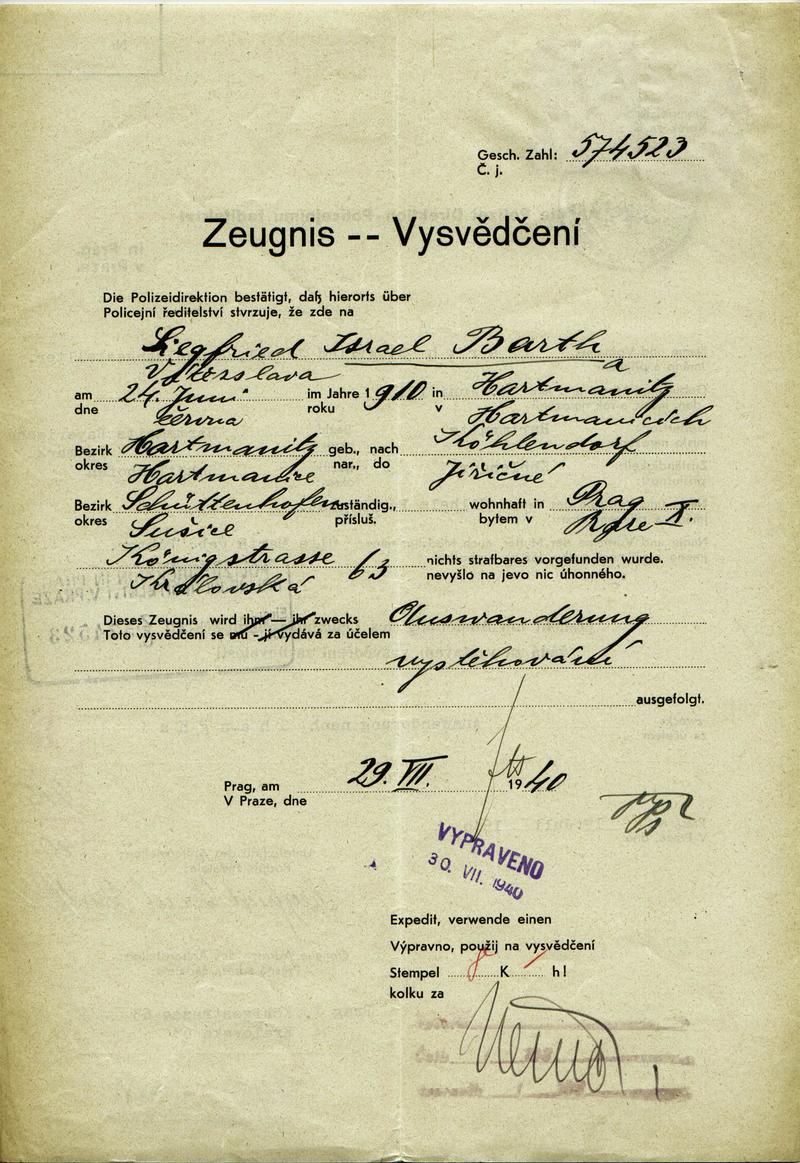 Gesch. Zahl: 574523
Č. j.
Zeugnis -- Vysvědčení
Die Polizeidirektion bestätigt, daß hierorts über
Policejní ředitelství stvrzuje, že zde na
Siegfried Israel Barth a
Vítězslava
am 24. Juni im Jahre 1910 in Hartmanitz
dne června roku v Hartmanicích
Bezirk Hartmanitz geb., nach Köhlendorf
okres Hartmanice nar., do Jiřičné
Bezirk Schüttenhofen zuständig., wohnhaft in Prag
okres Sušice přísluš. bytem v Praze X.
Königstrasse 63 nichts strafbares vorgefunden wurde.
Královská nevyšlo na jevo nic úhonného.
Dieses Zeugnis wird ihm — ihr zwecks Auswanderung
Toto vysvědčení se mu - jí vydává za účelem
vystěhování
ausgefolgt.
Prag, am 29. VII. 1940
V Praze, dne
VYPRAVENO
30. VII. 1940
Expedit, verwende einen
Výpravno, použij na vysvědčení
Stempel K h!
kolku za